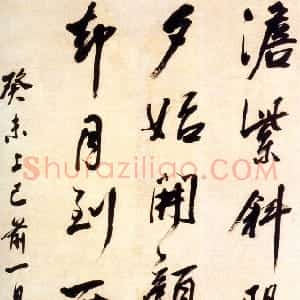 澹紫斜
夕始開顔
却月到
癸未上巳前一日
Shufaziliao.com